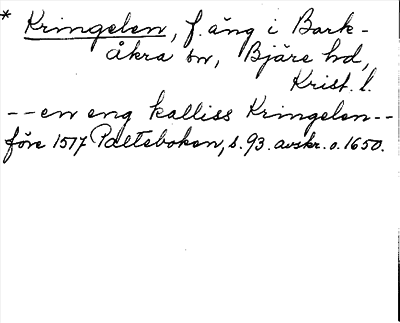 * Kringelen, f. äng i Bark-
åkra sn, Bjäre hd,
Krist. l.
-- en eng kalliss Kringelen --
före 1517 Palteboken, s. 93. avskr. o. 1650.